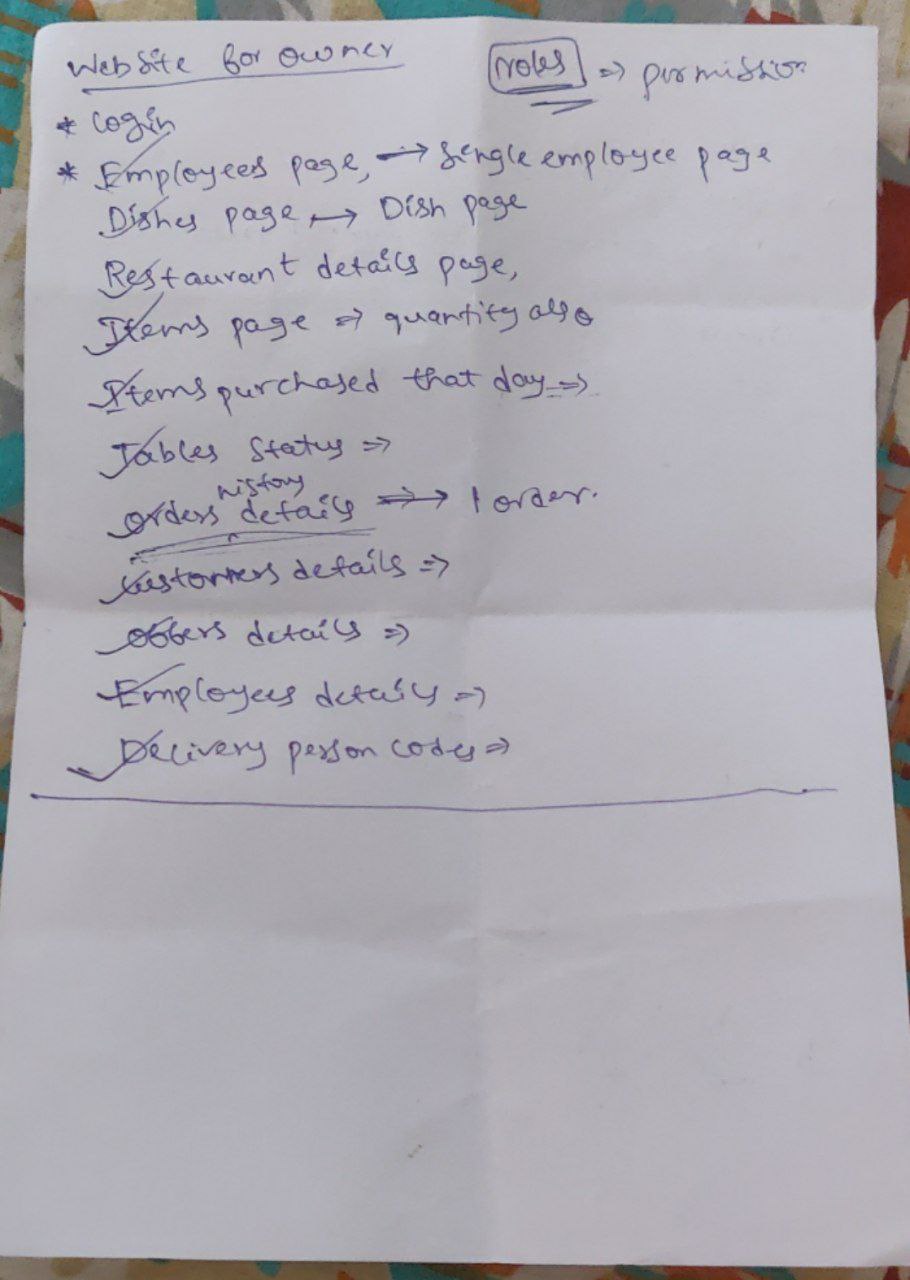 Website for owner
roles => permission
* Login
* Employees page, → Single employee page
Dishes page → Dish page
Restaurant details page,
Items page => quantity also
Items purchased that day =>
Tables Status =>
history
orders details => 1 order.
Customers details =>
offers details =>
Employees details =>
Delivery person codes =>